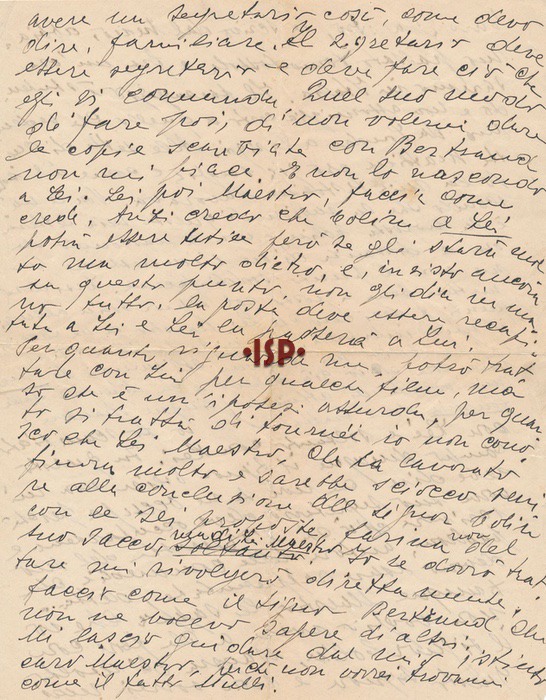 avere un segretario così, come devo
dire, familiare. Il segretario deve
essere segretario e deve fare ciò che
egli si comanda. Quel suo modo
di fare poi, di non volermi dare
le copie scambiate con Bertrand
non mi piace. E non lo nascondo
a Lei. Lei poi Maestro, faccia come
crede. Anzi credo che Colini a Lei
potrà essere utile però se gli starà
molto dietro, e, insisto ancora
su questo punto, non gli dia in ma
no tutto. La posta deve essere recapi
tata a Lei e Lei la passerà a Lui.
Per quanto riguarda me, potrò trat
tare con Lui per qualche film, ma
che è un'ipotesi assurda, per quan
to si tratta di tournée io non cono
sco che Lei Maestro, che ha lavorato
finora molto e sarebbe sciocco veni
re alla conclusione del signor Colini
con le sei proposte, farina non del
suo sacco, Maestro. Io se dovrò trat
tare mi rivolgerò direttamente,
faccio come il signor Bertrand che
non ne voleva sapere di altri.
Mi lascio guidare dal mio istinto
caro Maestro, perché non vorrei trovarmi
come il fatto Mulli.
•ISP•